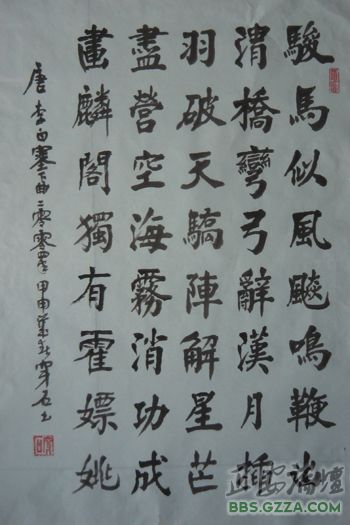 駿馬似風飈鳴鞭出
渭橋彎弓辭漢月插
羽破天驕陣解星芒
盡營空海霧消功成
畫麟閣獨有霍嫖姚
唐李白塞下曲二零零四年甲申穿石書
正安論壇
BBS.GZZA.COM